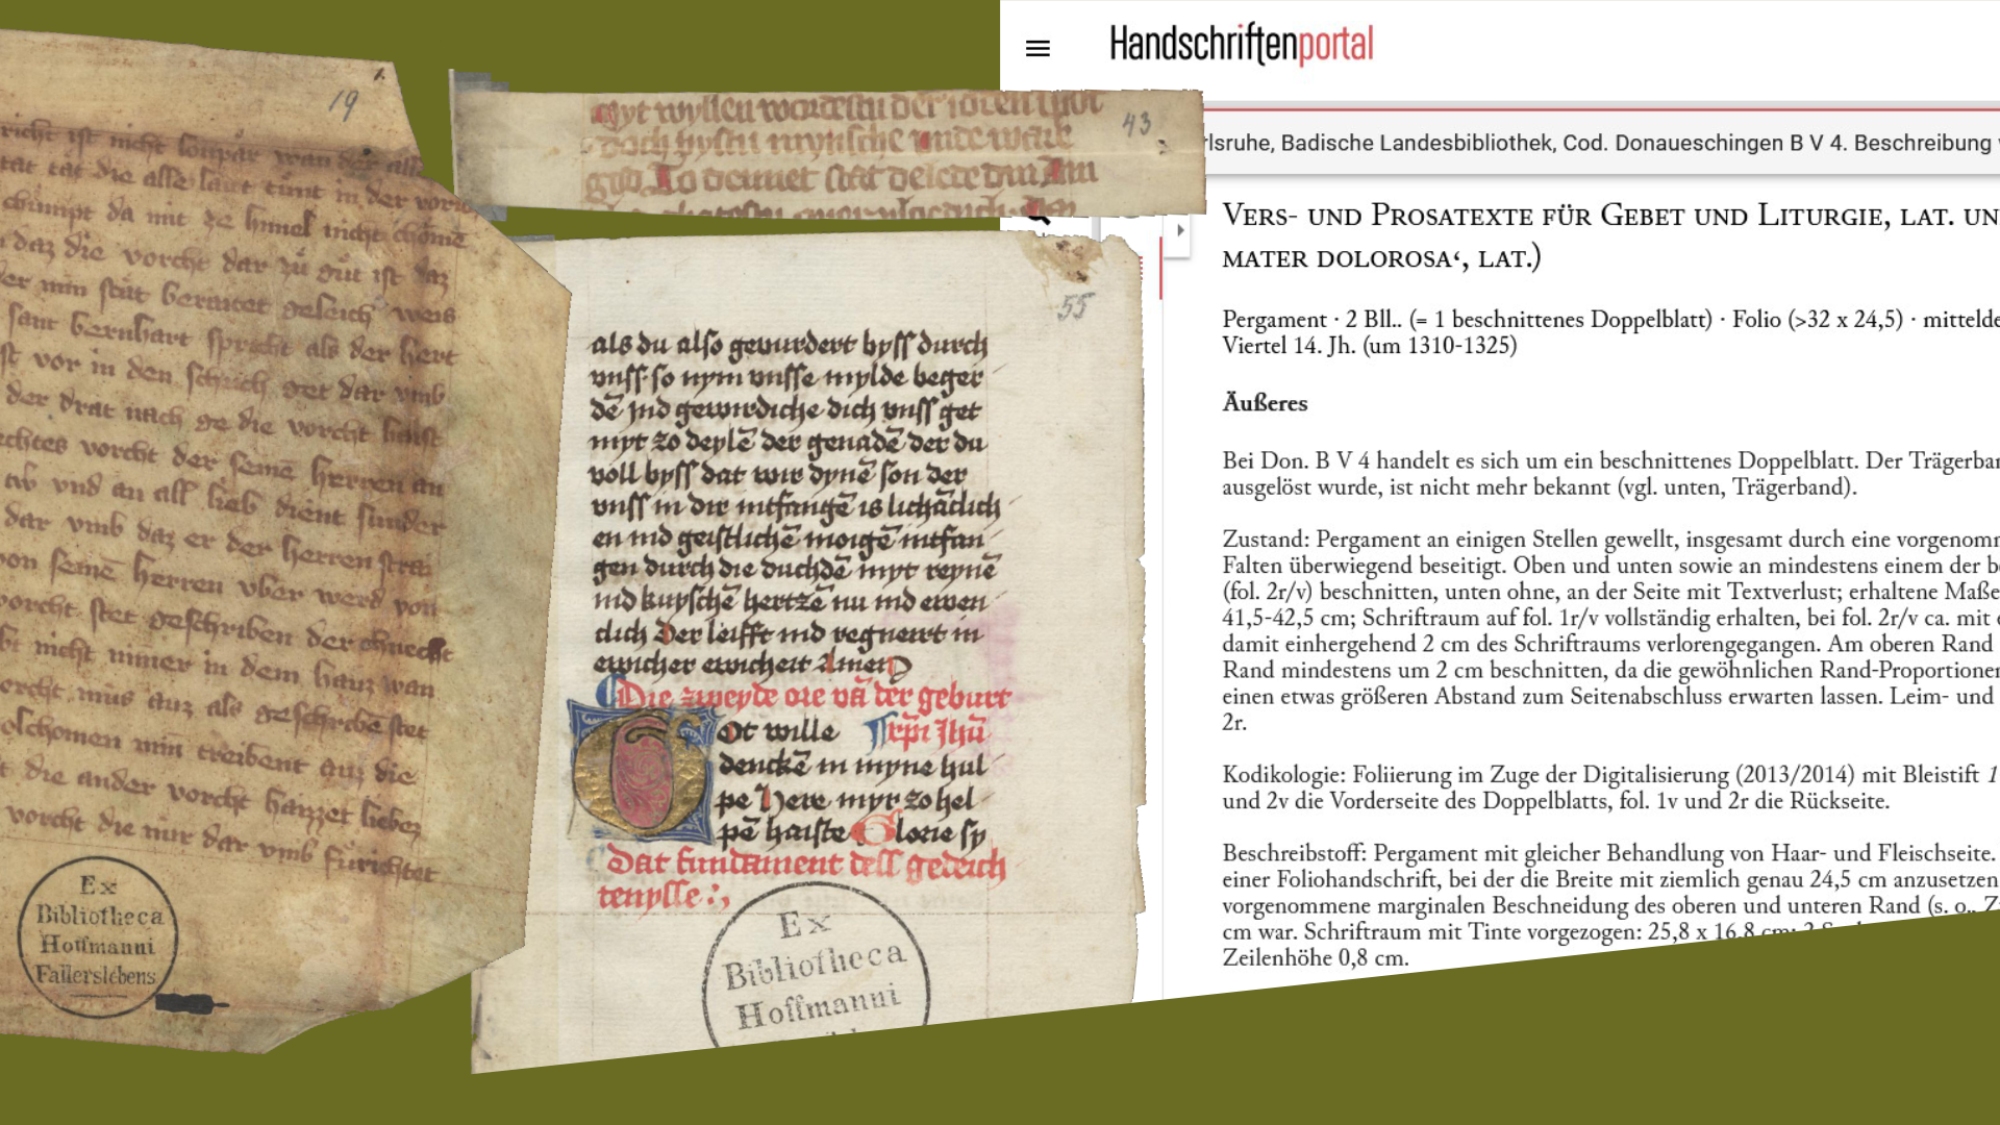 19
richt ist nicht
tat tät die alle laut tünt in der
chumpt da mit ze himel nicht chöme
daz die vorcht dar zů gůt ist daz
der min stät beraitet geleich weis
sant bernhart spricht als der hert
vor in den schrich get dar vmb
der drat nach ge die vorcht
rechtes vorcht der seinē herren an
vnd an all lieb dient sunder
dar vmb daz er der herren
von seinē herren vber werd von
vorcht stet geschriben der chnecht
nicht nimer in dem hauz wan
vorcht mus auz als geschribē stet
volchomen min treibent auz die
die ander vorcht haizzet
vorcht die nur dar vmb fürichtet
Ex
Bibliotheca
Hoffmanni
Fallerslebens
43
myt wyllen
doch bystu mynsche vnde ware
god
55
als du also gewurdert byss durch
vnss so nym vnsse mylde beger
dē ind gewirdiche dich vnss get
myt zo deylē der genadē der du
voll byss dat wir dynē son der
vnss in dir intfangē is lichāclich
en ind geistlichē moigē intfan
gen durch die duchdē myt reynē
ind kuyschē hertzē nu ind ewen
clich Der leifft ind regneirt in
ewicher ewicheit Amen
Die zweyde ore vā der geburt
Got wille xpi Jhū
denckē in myne hul
pe Here myr zo hel
pē haiste Glorie sy
Dat fundament dess gedech
tenysse :,
Ex
Bibliotheca
Hoffmanni
Handschriftenportal
rlsruhe, Badische Landesbibliothek, Cod. Donaueschingen B V 4. Beschreibung
Vers- und Prosatexte für Gebet und Liturgie, lat. un
mater dolorosa‘, lat.)
Pergament · 2 Bll.. (= 1 beschnittenes Doppelblatt) · Folio (>32 x 24,5) · mittelde
Viertel 14. Jh. (um 1310-1325)
Äußeres
Bei Don. B V 4 handelt es sich um ein beschnittenes Doppelblatt. Der Trägerban
ausgelöst wurde, ist nicht mehr bekannt (vgl. unten, Trägerband).
Zustand: Pergament an einigen Stellen gewellt, insgesamt durch eine vorgenomm
Falten überwiegend beseitigt. Oben und unten sowie an mindestens einem der b
(fol. 2r/v) beschnitten, unten ohne, an der Seite mit Textverlust; erhaltene Maße
41,5-42,5 cm; Schriftraum auf fol. 1r/v vollständig erhalten, bei fol. 2r/v ca. mit
damit einhergehend 2 cm des Schriftraums verlorengegangen. Am oberen Rand
Rand mindestens um 2 cm beschnitten, da die gewöhnlichen Rand-Proportionen
einen etwas größeren Abstand zum Seitenabschluss erwarten lassen. Leim- und
2r.
Kodikologie: Foliierung im Zuge der Digitalisierung (2013/2014) mit Bleistift 1
und 2v die Vorderseite des Doppelblatts, fol. 1v und 2r die Rückseite.
Beschreibstoff: Pergament mit gleicher Behandlung von Haar- und Fleischseite.
einer Foliohandschrift, bei der die Breite mit ziemlich genau 24,5 cm anzusetzen
vorgenommene marginalen Beschneidung des oberen und unteren Rand (s. o.,
cm war. Schriftraum mit Tinte vorgezogen: 25,8 x 16,8 cm;
Zeilenhöhe 0,8 cm.